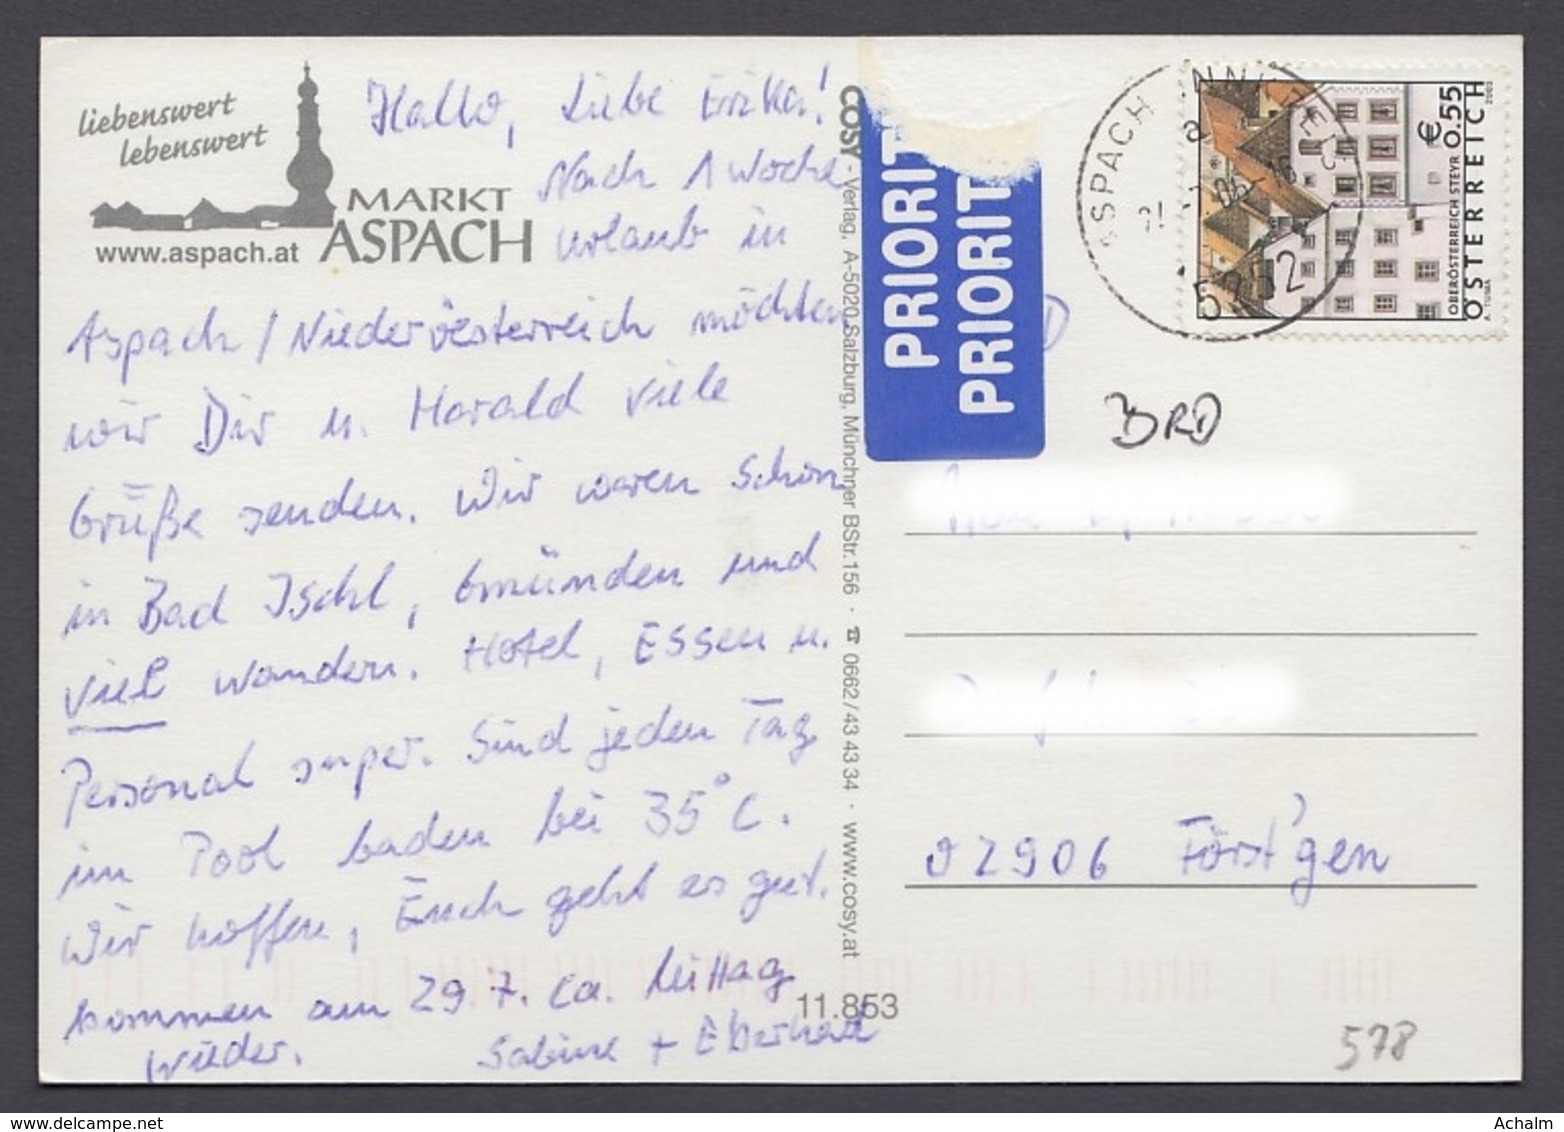 liebenswert
lebenswert
MARKT
ASPACH
www.aspach.at
Hallo, Liebe Erika!
Nach 1 Woche
Urlaub in
Aspach / Niederöesterreich möchten
wir Dir u. Harald viele
Grüße senden. Wir waren schon
in Bad Ischl, Gmünden und
viel wandern. Hotel, Essen u.
Personal super. Sind jeden Tag
im Pool baden bei 35°C.
Wir hoffen, Euch geht es gut.
kommen am 29.7. ca. Mittag
wieder. Sabine + Eberhard
COSY - Verlag, A-5020 Salzburg, Münchner BStr.156 · ☎ 0662/43 43 34 · www.cosy.at
11.853
PRIORIT
PRIORIT
ASPACH INNKREIS
5252
€ 0.55
OBERÖSTERREICH STEYR
ÖSTERREICH
A. TUMA
2003
BRD
02906 Först'gen
578
Achalm